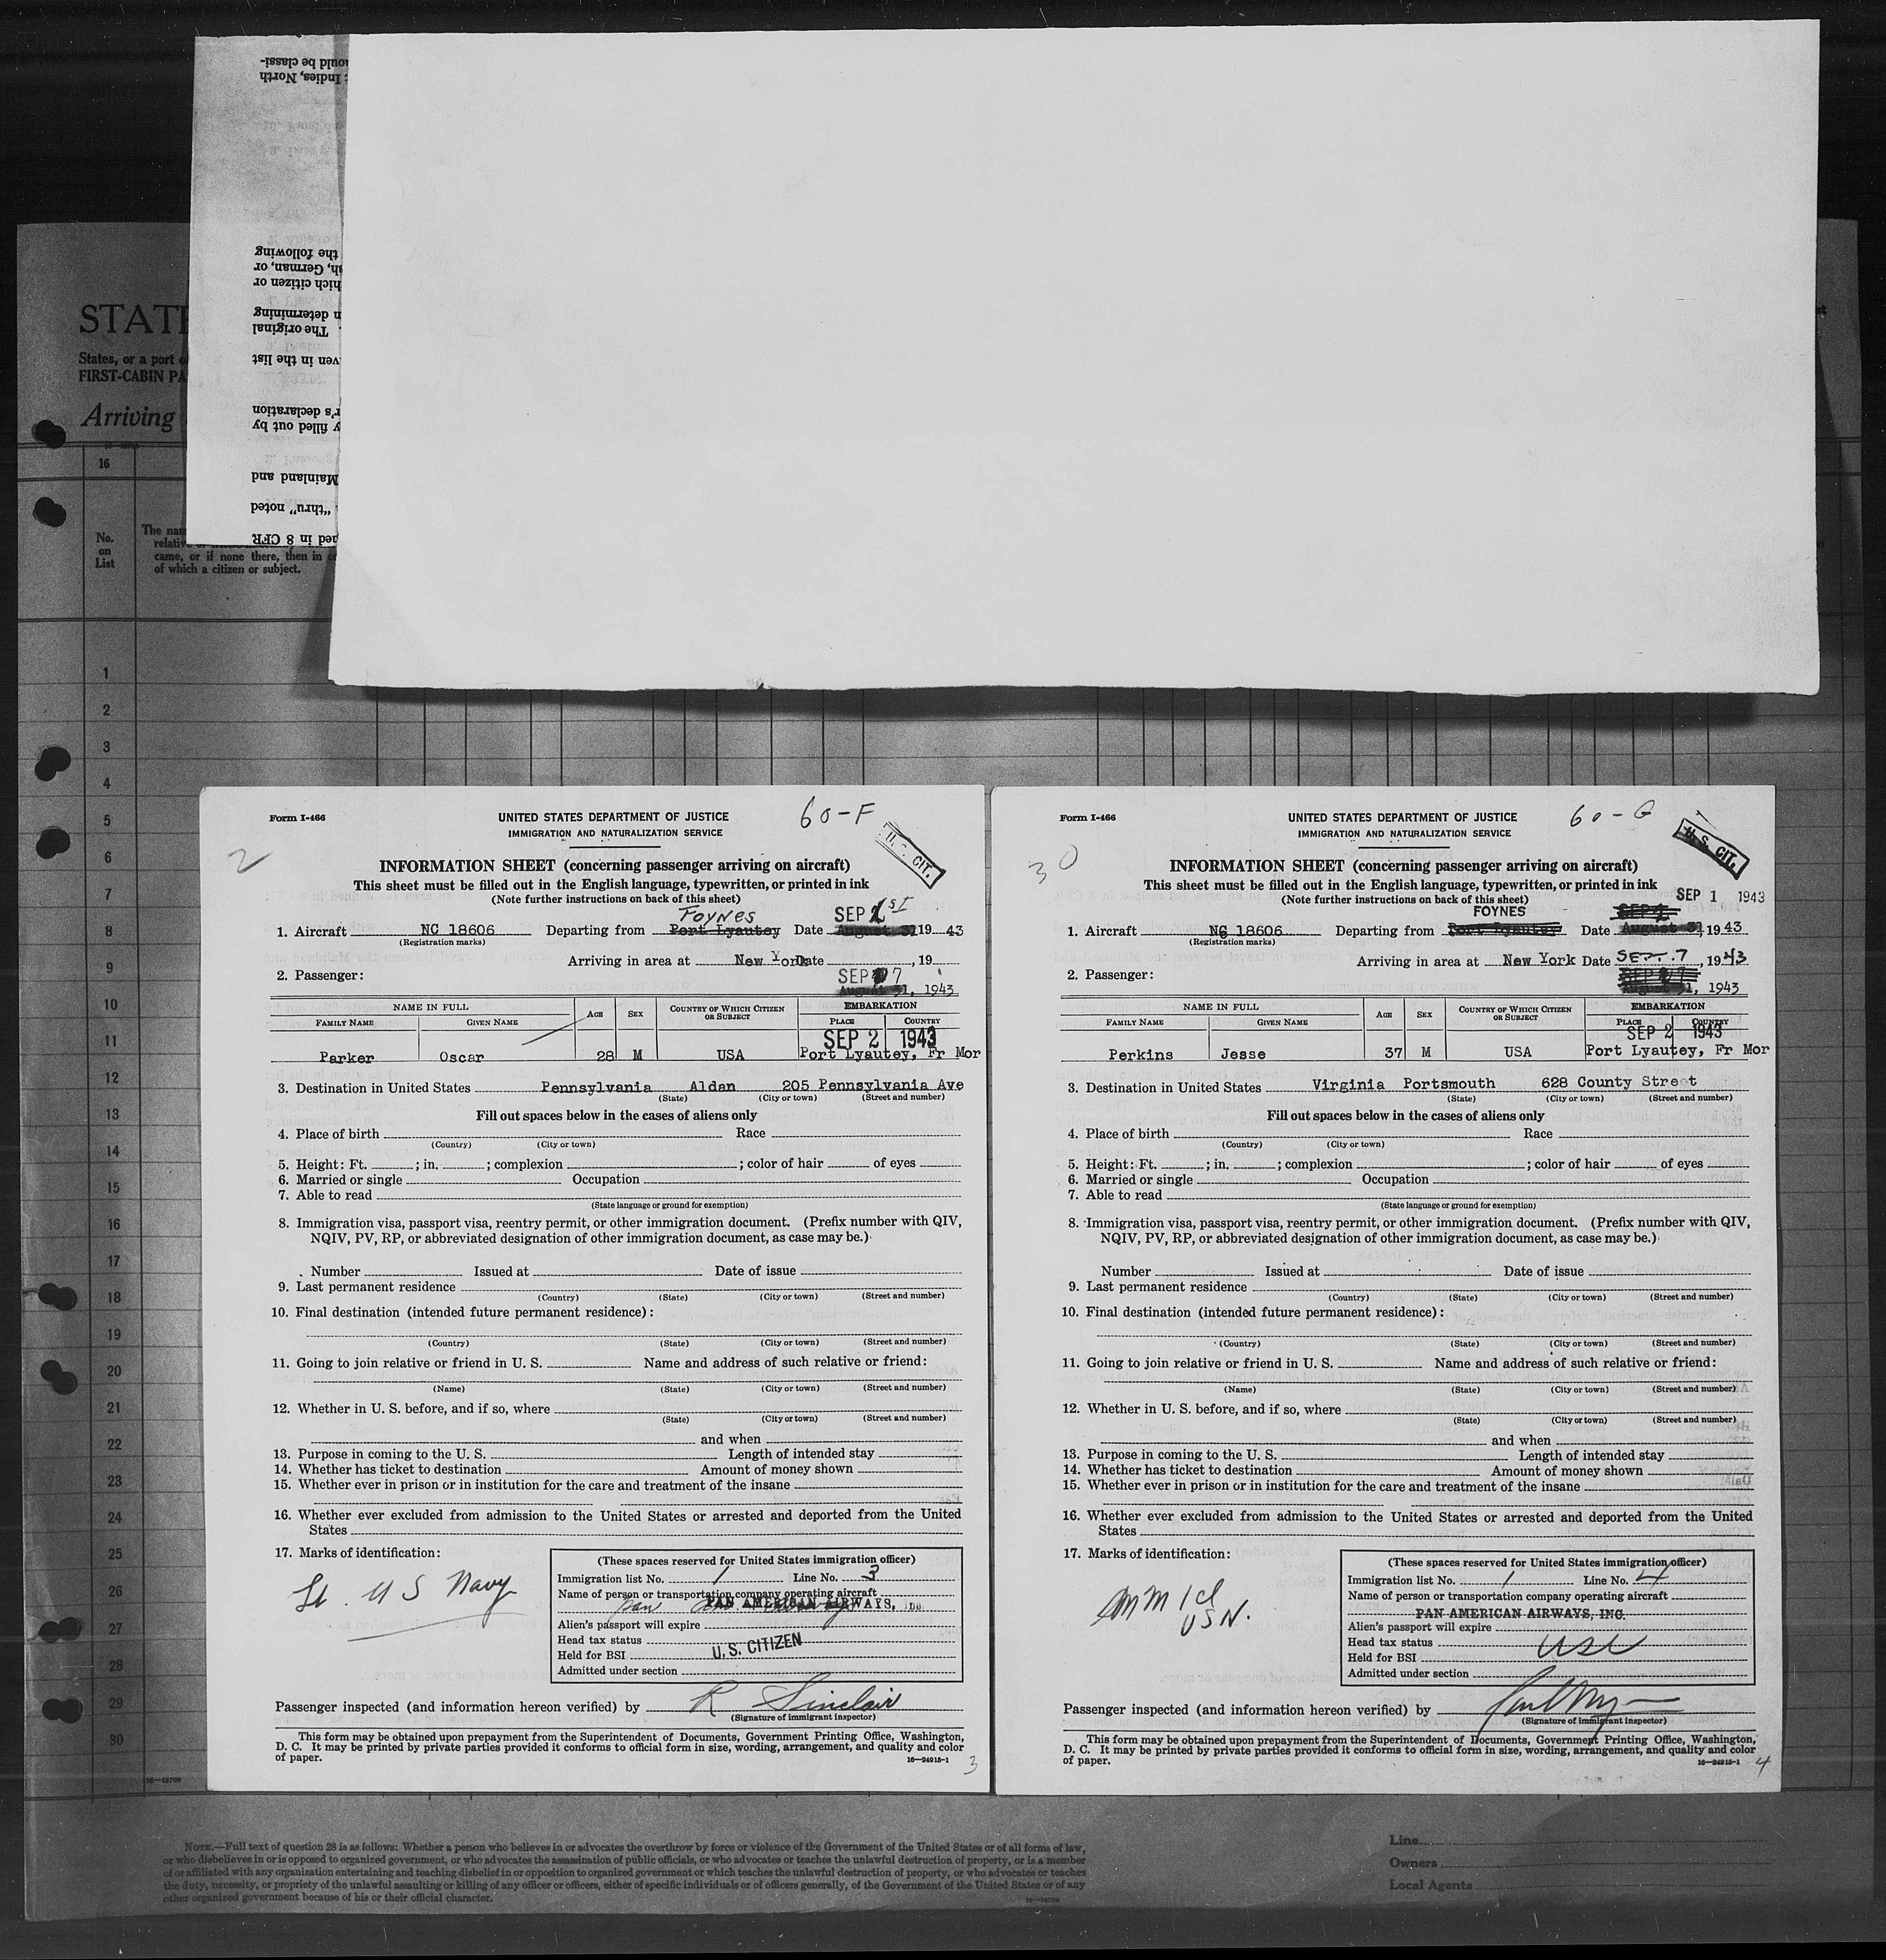 STATE
States, or a port o
FIRST-CABIN PA
Arriving
16
No.
on
List
The nam
relativ
came, or if none there, then in c
of which a citizen or subject.
ould be classi-
t Indies, North
the following
sh, German, or
hich citizen or
n determining
. The original
ven in the list
r's declaration
y filled out by
Mainland and
"thru" noted
ned in 8 CFR
1
2
3
4
5
6
7
8
9
10
11
12
13
14
15
16
17
18
19
20
21
22
23
24
25
26
27
28
29
30
16—18709
Form I-466
UNITED STATES DEPARTMENT OF JUSTICE
60-F
IMMIGRATION AND NATURALIZATION SERVICE
U. S. CIT.
2
INFORMATION SHEET (concerning passenger arriving on aircraft)
This sheet must be filled out in the English language, typewritten, or printed in ink
(Note further instructions on back of this sheet)
FOYNES SEP 1st
1. Aircraft NC 18606 Departing from Port Lyautey Date August 31 19 43
(Registration marks)
Arriving in area at New York Date , 19
2. Passenger: SEP 7
August 31, 1943
NAME IN FULL AGE SEX COUNTRY OF WHICH CITIZEN OR SUBJECT EMBARKATION
FAMILY NAME GIVEN NAME PLACE COUNTRY
SEP 2 1943
Parker Oscar 28 M USA Port Lyautey, Fr Mor
3. Destination in United States Pennsylvania Aldan 205 Pennsylvania Ave
(State) (City or town) (Street and number)
Fill out spaces below in the cases of aliens only
4. Place of birth Race
(Country) (City or town)
5. Height: Ft. ; in. ; complexion ; color of hair of eyes
6. Married or single Occupation
7. Able to read
(State language or ground for exemption)
8. Immigration visa, passport visa, reentry permit, or other immigration document. (Prefix number with QIV,
NQIV, PV, RP, or abbreviated designation of other immigration document, as case may be.)
Number Issued at Date of issue
9. Last permanent residence
(Country) (State) (City or town) (Street and number)
10. Final destination (intended future permanent residence):
(Country) (State) (City or town) (Street and number)
11. Going to join relative or friend in U. S. Name and address of such relative or friend:
(Name) (State) (City or town) (Street and number)
12. Whether in U. S. before, and if so, where
(State) (City or town) (Street and number)
and when
13. Purpose in coming to the U. S. Length of intended stay
14. Whether has ticket to destination Amount of money shown
15. Whether ever in prison or in institution for the care and treatment of the insane
16. Whether ever excluded from admission to the United States or arrested and deported from the United
States
17. Marks of identification:
Lt. U S Navy
(These spaces reserved for United States immigration officer)
Immigration list No. 1 Line No. 3
Name of person or transportation company operating aircraft
PAN AMERICAN AIRWAYS, Inc.
Alien's passport will expire
Head tax status
U.S. CITIZEN
Held for BSI
Admitted under section
Passenger inspected (and information hereon verified) by R Sinclair
(Signature of immigrant inspector)
This form may be obtained upon prepayment from the Superintendent of Documents, Government Printing Office, Washington,
D. C. It may be printed by private parties provided it conforms to official form in size, wording, arrangement, and quality and color
of paper. 16—24915-1
3
Form I-466
UNITED STATES DEPARTMENT OF JUSTICE
60-G
IMMIGRATION AND NATURALIZATION SERVICE
U. S. CIT.
30
INFORMATION SHEET (concerning passenger arriving on aircraft)
This sheet must be filled out in the English language, typewritten, or printed in ink
(Note further instructions on back of this sheet) SEP 1 1943
FOYNES SEP 1
1. Aircraft NC 18606 Departing from Port Lyautey Date August 31, 19 43
(Registration marks)
Arriving in area at New York Date SEPT. 7, 1943
2. Passenger: SEP 7
August 31, 1943
NAME IN FULL AGE SEX COUNTRY OF WHICH CITIZEN OR SUBJECT EMBARKATION
FAMILY NAME GIVEN NAME PLACE COUNTRY
SEP 2 1943
Perkins Jesse 37 M USA Port Lyautey, Fr Mor
3. Destination in United States Virginia Portsmouth 628 County Street
(State) (City or town) (Street and number)
Fill out spaces below in the cases of aliens only
4. Place of birth Race
(Country) (City or town)
5. Height: Ft. ; in. ; complexion ; color of hair of eyes
6. Married or single Occupation
7. Able to read
(State language or ground for exemption)
8. Immigration visa, passport visa, reentry permit, or other immigration document. (Prefix number with QIV,
NQIV, PV, RP, or abbreviated designation of other immigration document, as case may be.)
Number Issued at Date of issue
9. Last permanent residence
(Country) (State) (City or town) (Street and number)
10. Final destination (intended future permanent residence):
(Country) (State) (City or town) (Street and number)
11. Going to join relative or friend in U. S. Name and address of such relative or friend:
(Name) (State) (City or town) (Street and number)
12. Whether in U. S. before, and if so, where
(State) (City or town) (Street and number)
and when
13. Purpose in coming to the U. S. Length of intended stay
14. Whether has ticket to destination Amount of money shown
15. Whether ever in prison or in institution for the care and treatment of the insane
16. Whether ever excluded from admission to the United States or arrested and deported from the United
States
17. Marks of identification:
MM 1cl
USN.
(These spaces reserved for United States immigration officer)
Immigration list No. 1 Line No. 4
Name of person or transportation company operating aircraft
PAN AMERICAN AIRWAYS, INC.
Alien's passport will expire
Head tax status USC
Held for BSI
Admitted under section
Passenger inspected (and information hereon verified) by
(Signature of immigrant inspector)
This form may be obtained upon prepayment from the Superintendent of Documents, Government Printing Office, Washington,
D. C. It may be printed by private parties provided it conforms to official form in size, wording, arrangement, and quality and color
of paper. 16—24915-1
4
NOTE.—Full text of question 28 is as follows: Whether a person who believes in or advocates the overthrow by force or violence of the Government of the United States or of all forms of law,
or who disbelieves in or is opposed to organized government, or who advocates the assassination of public officials, or who advocates or teaches the unlawful destruction of property, or is a member
of or affiliated with any organization entertaining and teaching disbelief in or opposition to organized government or which teaches the unlawful destruction of property, or who advocates or teaches
the duty, necessity, or propriety of the unlawful assaulting or killing of any officer or officers, either of specific individuals or of officers generally, of the Government of the United States or of any
other organized government because of his or their official character.
16—18709
Line
Owners
Local Agents